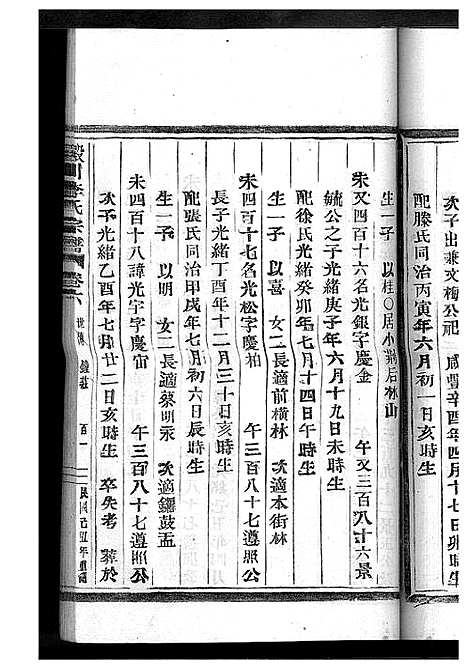 次子出兼文梅公祀　咸豐辛酉年四月十七日卯時生
配滕氏同治丙寅年六月初一日亥時生
生一子　以桂〇居小荆后林山
未又四百十六名光銀字慶金　午又三百八十六景
毓公之子光緒庚子年六月十九日未時生
配徐氏光緒癸卯年七月十四日午時生
生一子　以喜　女二長適前橫林　次適本街林
未四百十七名光松字慶柏　午三百八十七遵照公
長子光緒丁酉年十二月三十日亥時生
配張氏同治甲戌年七月初六日辰時生
生一子　以明　女二長適蔡明汞　次適鑼鼓盂
未四百十八諱光宇字慶宙　午三百八十七遵照公
次子光緒乙酉年七月廿二日亥時生　卒失考　葬於
穀川李氏宗譜　卷六　世傳　百一　民國己丑年重編